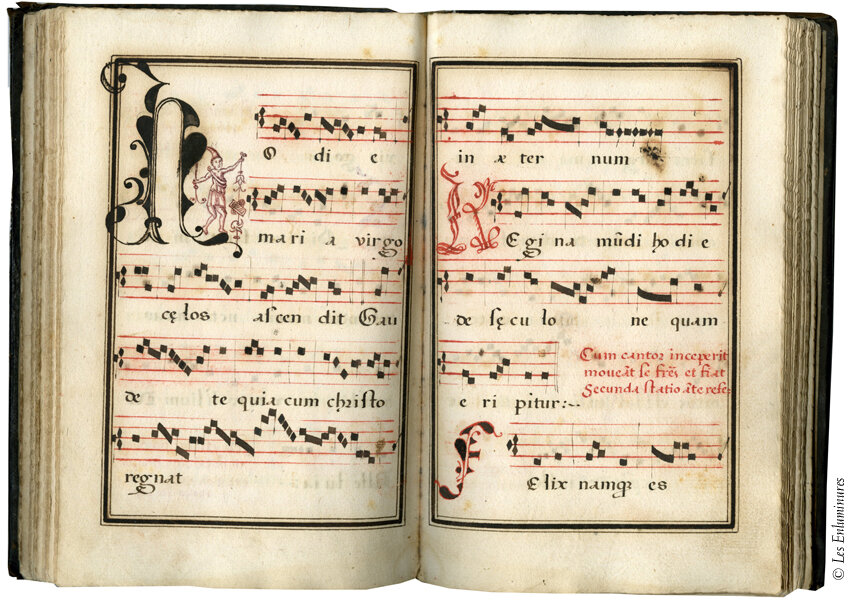 HO di e
mari a virgo
cęlos ascen dit Gau
de te quia cum christo
regnat
in æ ter num
REgi na mūdi ho di e
de sęcu lo ne quam
e ri pitur:~
Cum cantor inceperit
moveāt se frēs et fiat
Secunda statio āte refec
FElix namq̄ es
© Les Enluminures